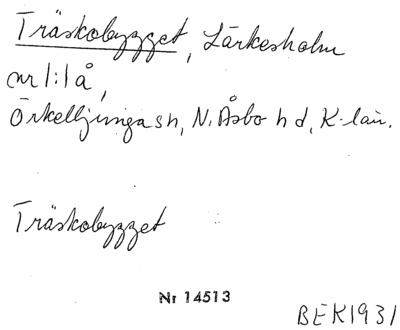 Träskobygget, Lärkesholm
nr 1:1 å,
Örkelljunga sn, N. Åsbo hd, K-län.
Träskobygget
Nr 14513
BEK1931